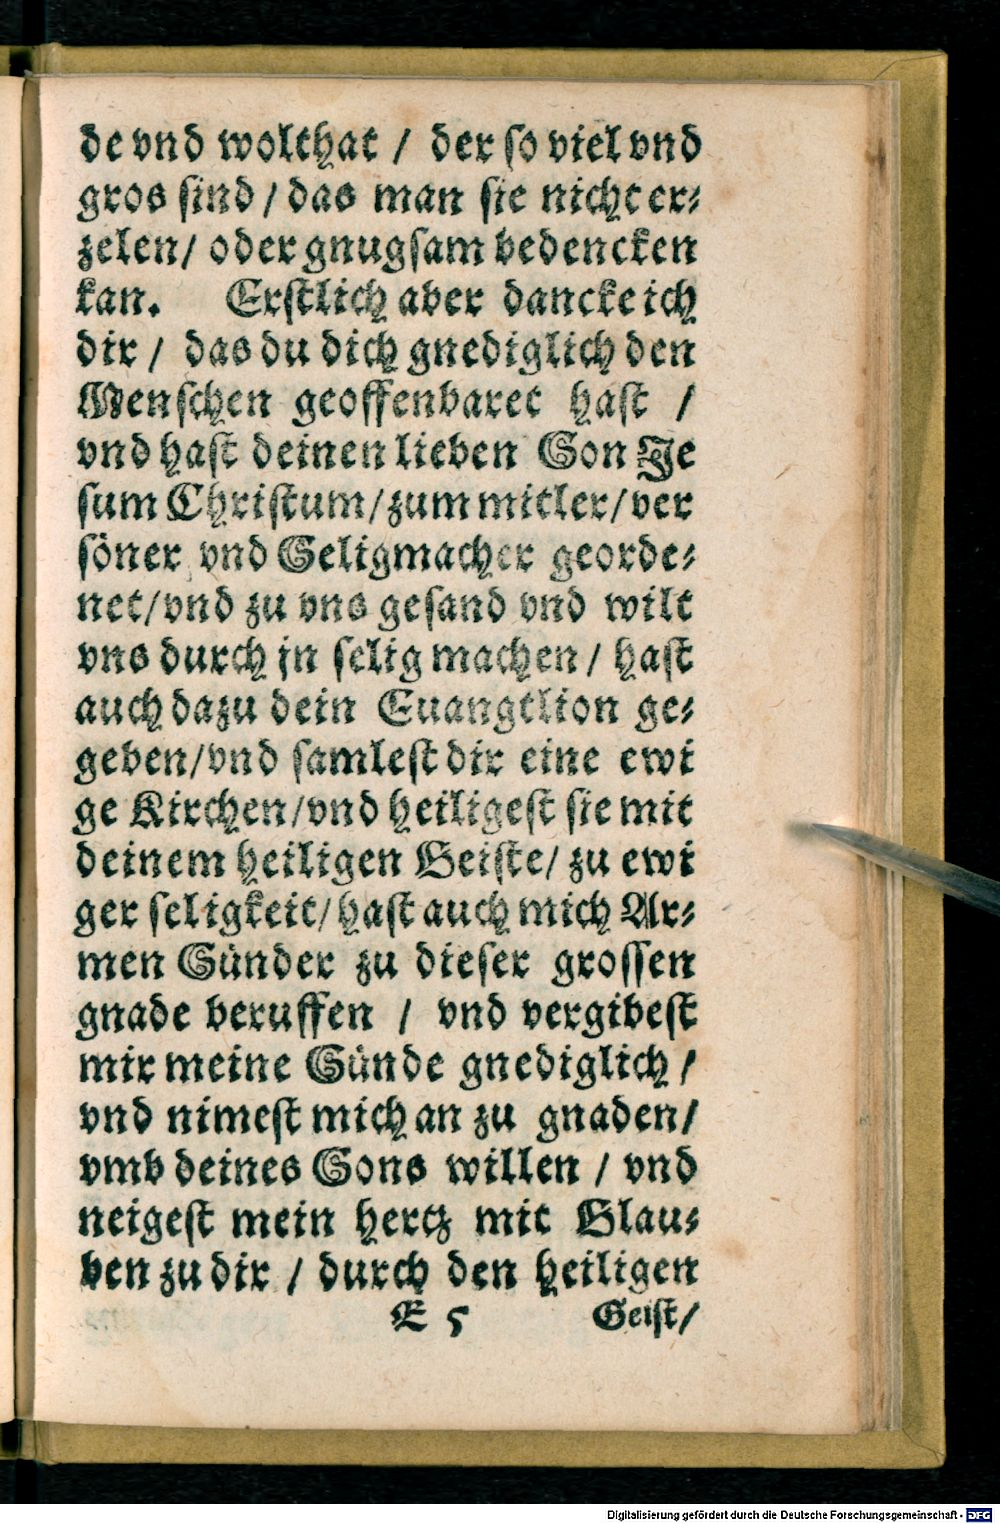 de vnd wolthat / der so viel vnd
gros sind / das man sie nicht er⸗
zelen / oder gnugsam bedencken
kan. Erstlich aber dancke ich
dir / das du dich gnediglich den
Menschen geoffenbaret hast /
vnd hast deinen lieben Son Je
sum Christum / zum mitler / ver
söner vnd Seligmacher georde⸗
net / vnd zu vns gesand vnd wilt
vns durch jn selig machen / hast
auch dazu dein Euangelion ge⸗
geben / vnd samlest dir eine ewi
ge Kirchen / vnd heiligest sie mit
deinem heiligen Geiste / zu ewi
ger seligkeit / hast auch mich Ar⸗
men Sünder zu dieser grossen
gnade beruffen / vnd vergibest
mir meine Sünde gnediglich /
vnd nimest mich an zu gnaden /
vmb deines Sons willen / vnd
neigest mein hertz mit Glau⸗
ben zu dir / durch den heiligen
E 5 Geist /
Digitalisierung gefördert durch die Deutsche Forschungsgemeinschaft - DFG